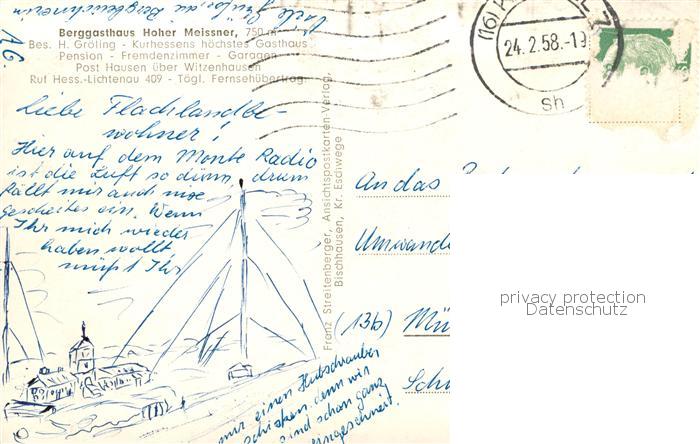 Viele Grüße, die Bergbewohnerin
Berggasthaus Hoher Meissner, 750 m
Bes. H. Gröling - Kurhessens höchstes Gasthaus
Pension - Fremdenzimmer - Garagen
Post Hausen über Witzenhausen
Ruf Hess.-Lichtenau 409 - Tägl. Fernsehübertrag.
Liebe Flachlandbe-
wohner!
Hier auf dem Monte Radio
ist die Luft so dünn, drum
fällt mir auch nix
gescheites ein. Wenn
Ihr mich wieder
haben wollt
müßt Ihr
mir einen Hubschrauber
schicken, denn wir
sind schon ganz
eingeschneit.
Franz Streitenberger, Ansichtspostkarten-Verlag,
Bischhausen, Kr. Eschwege
24.2.58.-19
An das
Umwand
(13b) Mü
Sch
privacy protection
Datenschutz